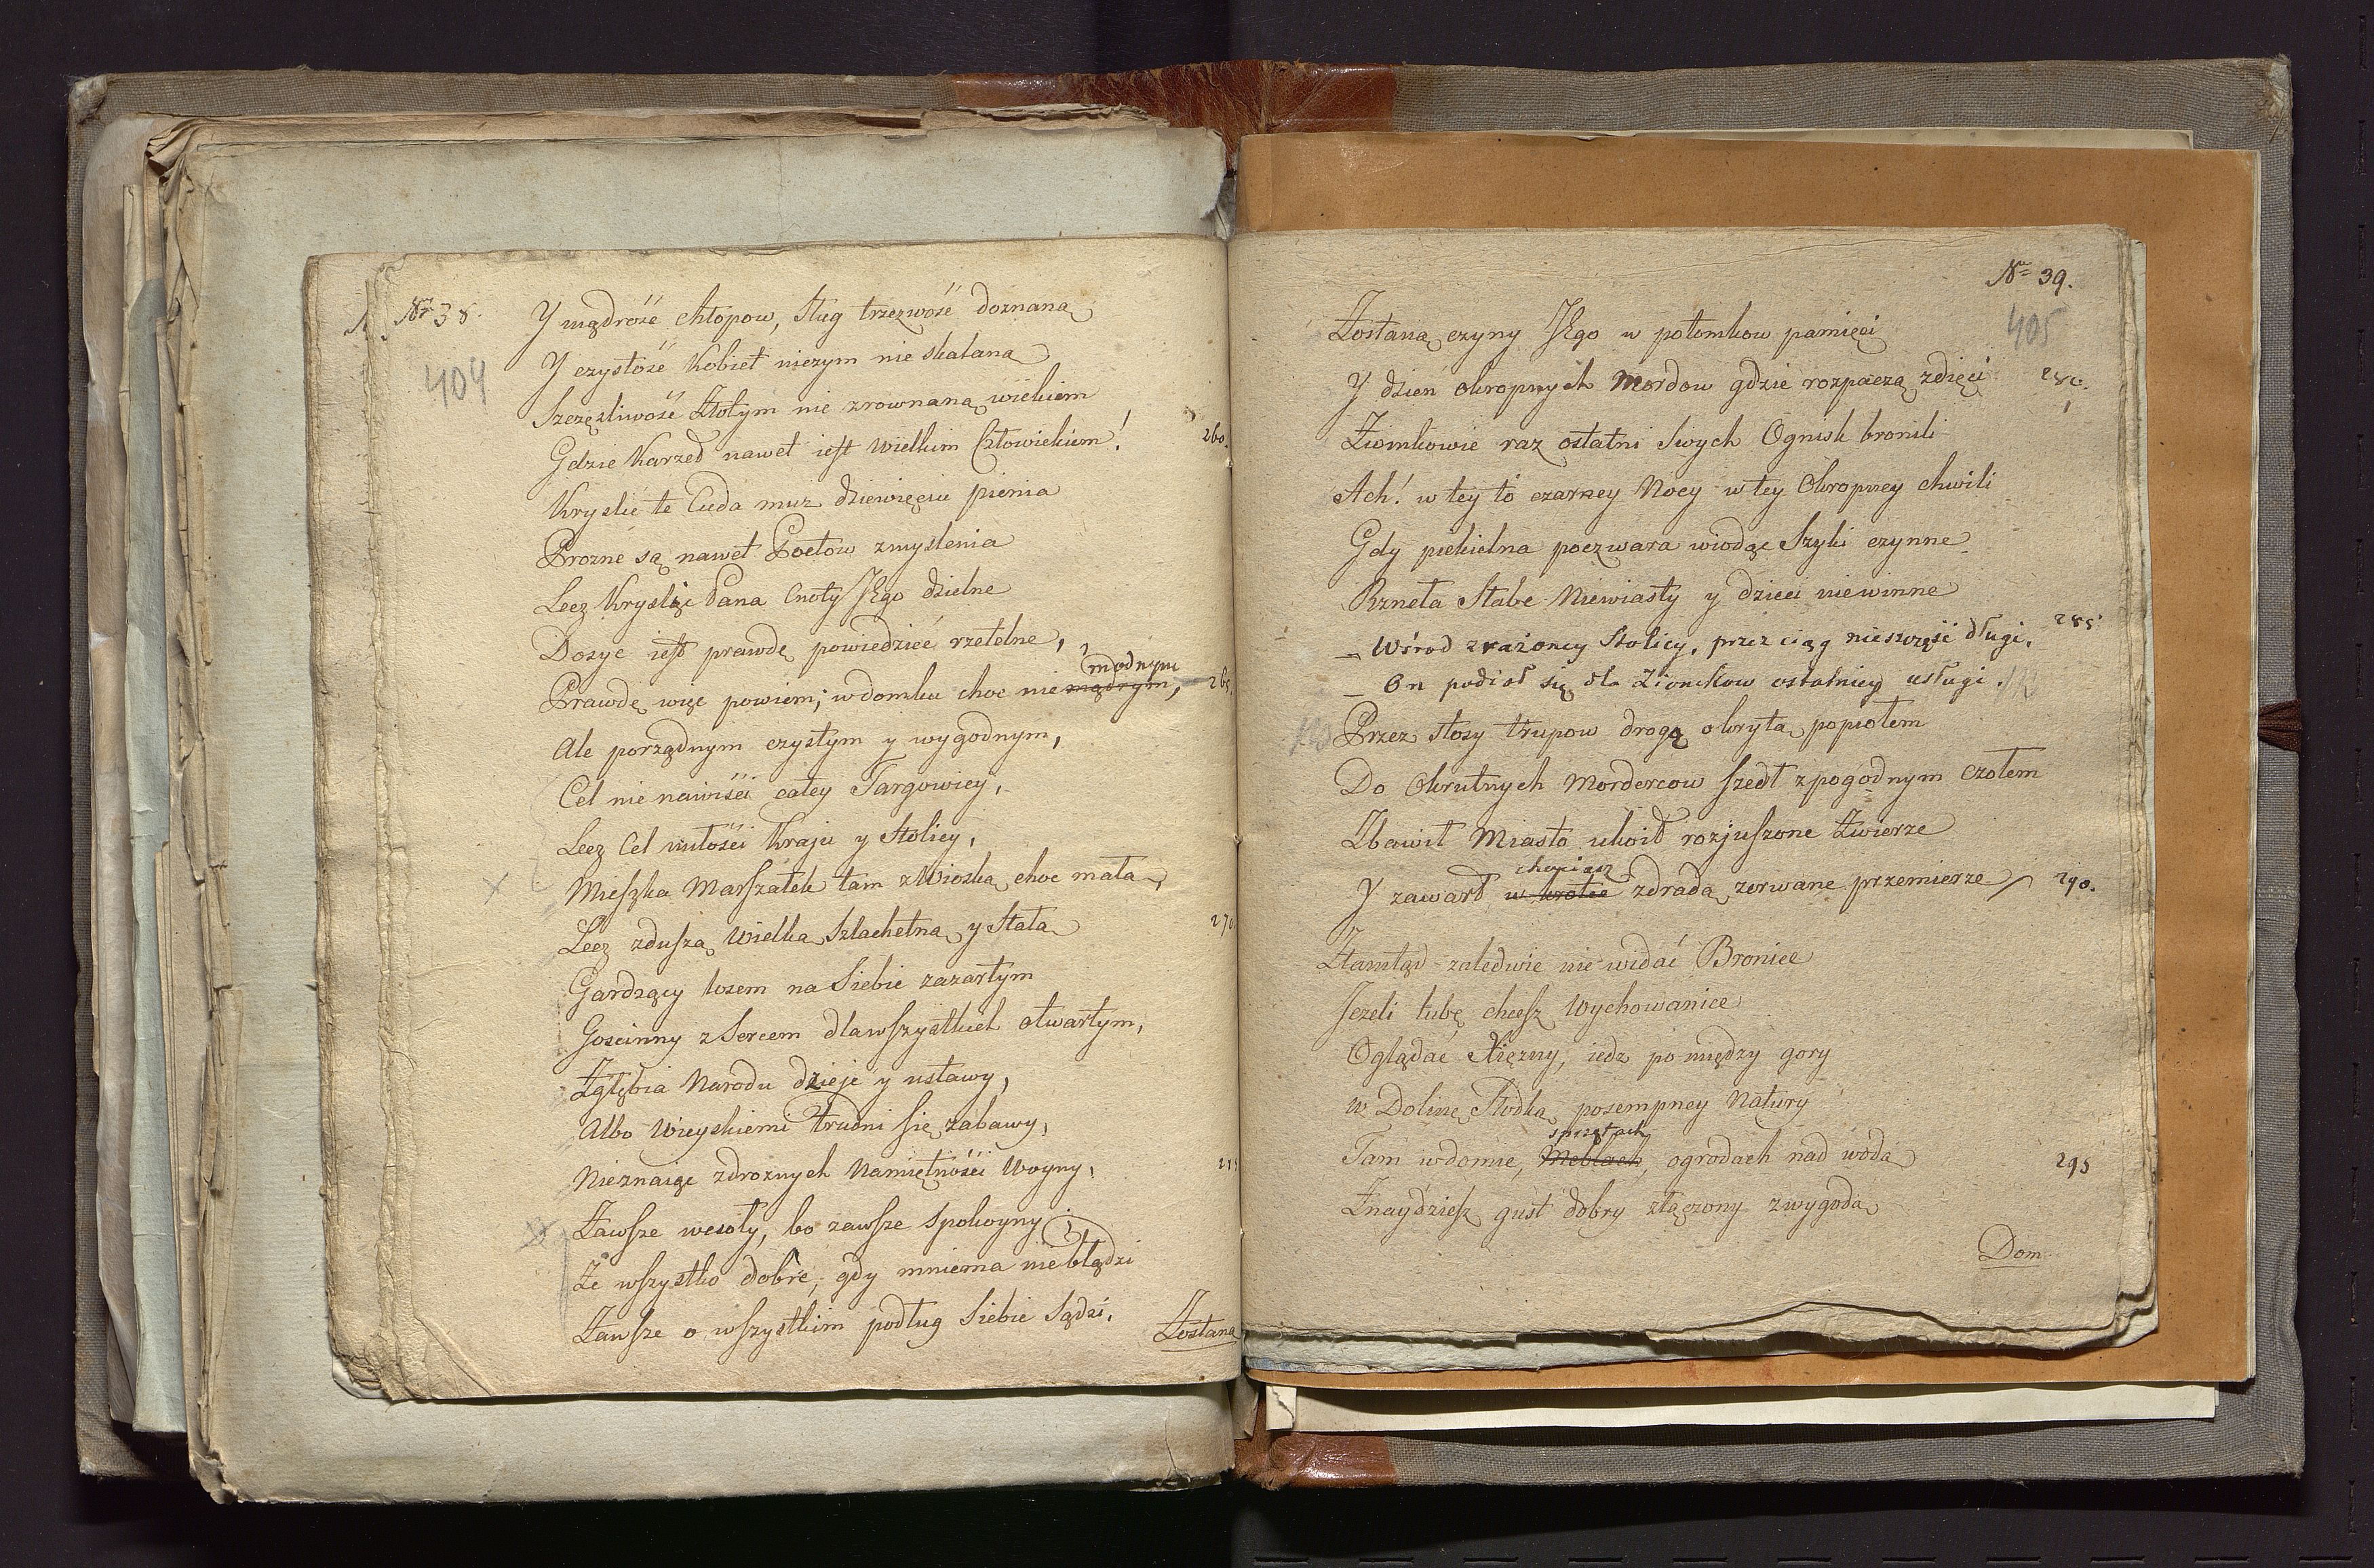 Nr 38.
404
Y mądrość chłopow, sług trzezwość doznaną
Y czystość kobiet niczym nie skalaną
Szczęsliwość złotym nie zrownaną wiekiem
Gdzie karzeł nawet iest wielkim Człowiekiem! 260.
Kryslić te Cuda muz dziewięciu pienia
Prozne są nawet Poetow zmyslenia
Lecz krysląc Pana Cnoty JEgo dzielne
Dosyc iest prawdę powiedzieć rzetelne,
modnym
Prawdę więc powiem; w domku choc nie mądrym, 265.
Ale porządnym czystym y wygodnym,
Cel nienawiści całey Targowicy,
Lecz Cel miłości Kraju y Stolicy,
Mieszka Marszałek tam z Wioską choc małą,
Lecz z duszą wielką szlachetną y stałą 270
Gardzący losem na Siebie zazartym
Goscinny z Sercem dla wszystkich otwartym,
Zgłębia Narodu dzieje y ustawy,
Albo Wieyskiemi trudni się zabawy,
Nieznaiąc zdroznych Namiętności Woyny, 275
Zawsze wesoły, bo zawsze spokoyny;
Ze wszystko dobre, gdy mniema nie błądzi
Zawsze o wszystkim podług Siebie sądzi.
Zostaną
Nr 39.
405
Zostaną czyny JEgo w potomkow pamięci
Y dzien okropnych Mordow gdzie rozpaczą zdięci 280.
Ziomkowie raz ostatni Swych Ognisk bronili
Ach! w tey to czarney Nocy w tey Okropney chwili
Gdy piekielna poczwara wiodąc Szyki czynne
Rzneła Słabe Niewiasty y dzieci niewinne
– Wśrod zrażoney Stolicy, przez ciąg nieszczęść długi, 285
– On podiął się dla Ziomkow ostatniey usługi.
Przez stosy trupow drogą okrytą popiołem
Do Okrutnych Mordercow szedł z pogodnym czołem
Zbawił Miasto ukoił rozjuszone Zwierze
chopiaz
Y zawarł w krotce zdradą zerwane przemierze 290.
Ztamtąd zaledwie nie widać Bronice
Jezeli lubę chcesz Wychowanice
Oglądać Xięzny, iedz pomiędzy gory
w Dolinę Słodką posempney Natury
sprzętach
Tam w domie, Meblach, ogrodach nad wodą 295
Znaydziesz gust dobry złączony z wygodą
Dom